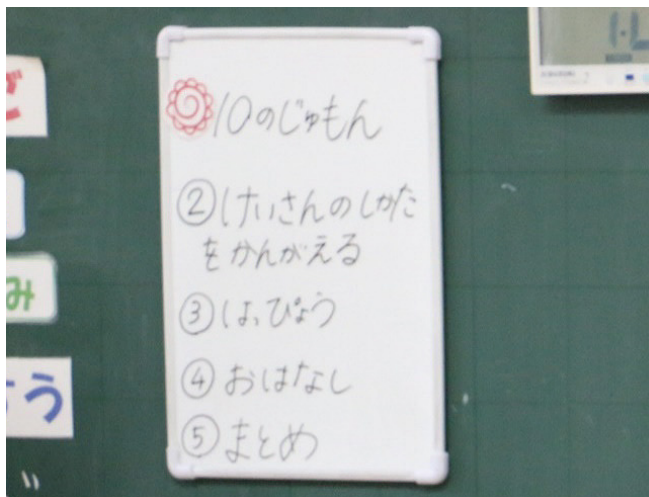 10のじゅもん
②けいさんのしかた
をかんがえる
③はっぴょう
④おはなし
⑤まとめ
み
う